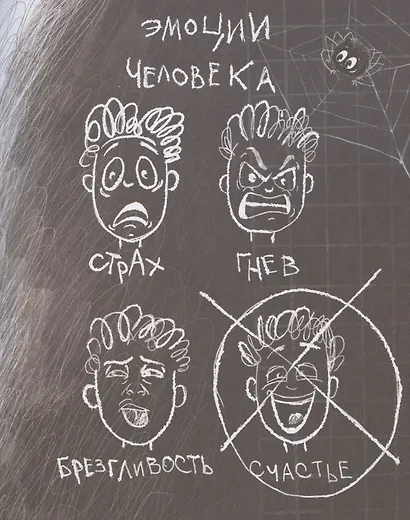 ЭМОЦИИ
ЧЕЛОВЕКА
СТРАХ
ГНЕВ
БРЕЗГЛИВОСТЬ
СЧАСТЬЕ